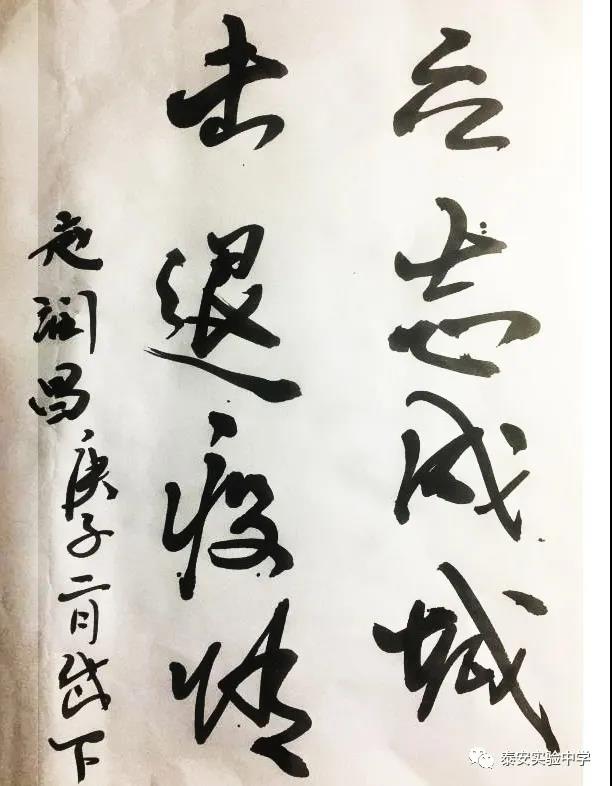 众志成城
击退疫情
赵润昌庚子二月岱下
泰安实验中学